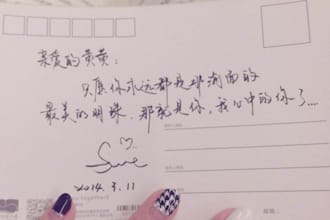 亲爱的黄黄：
只愿你永远都是那湖面的
最美的明珠，那就是你，我心中的你了...
Sure
2014.3.11